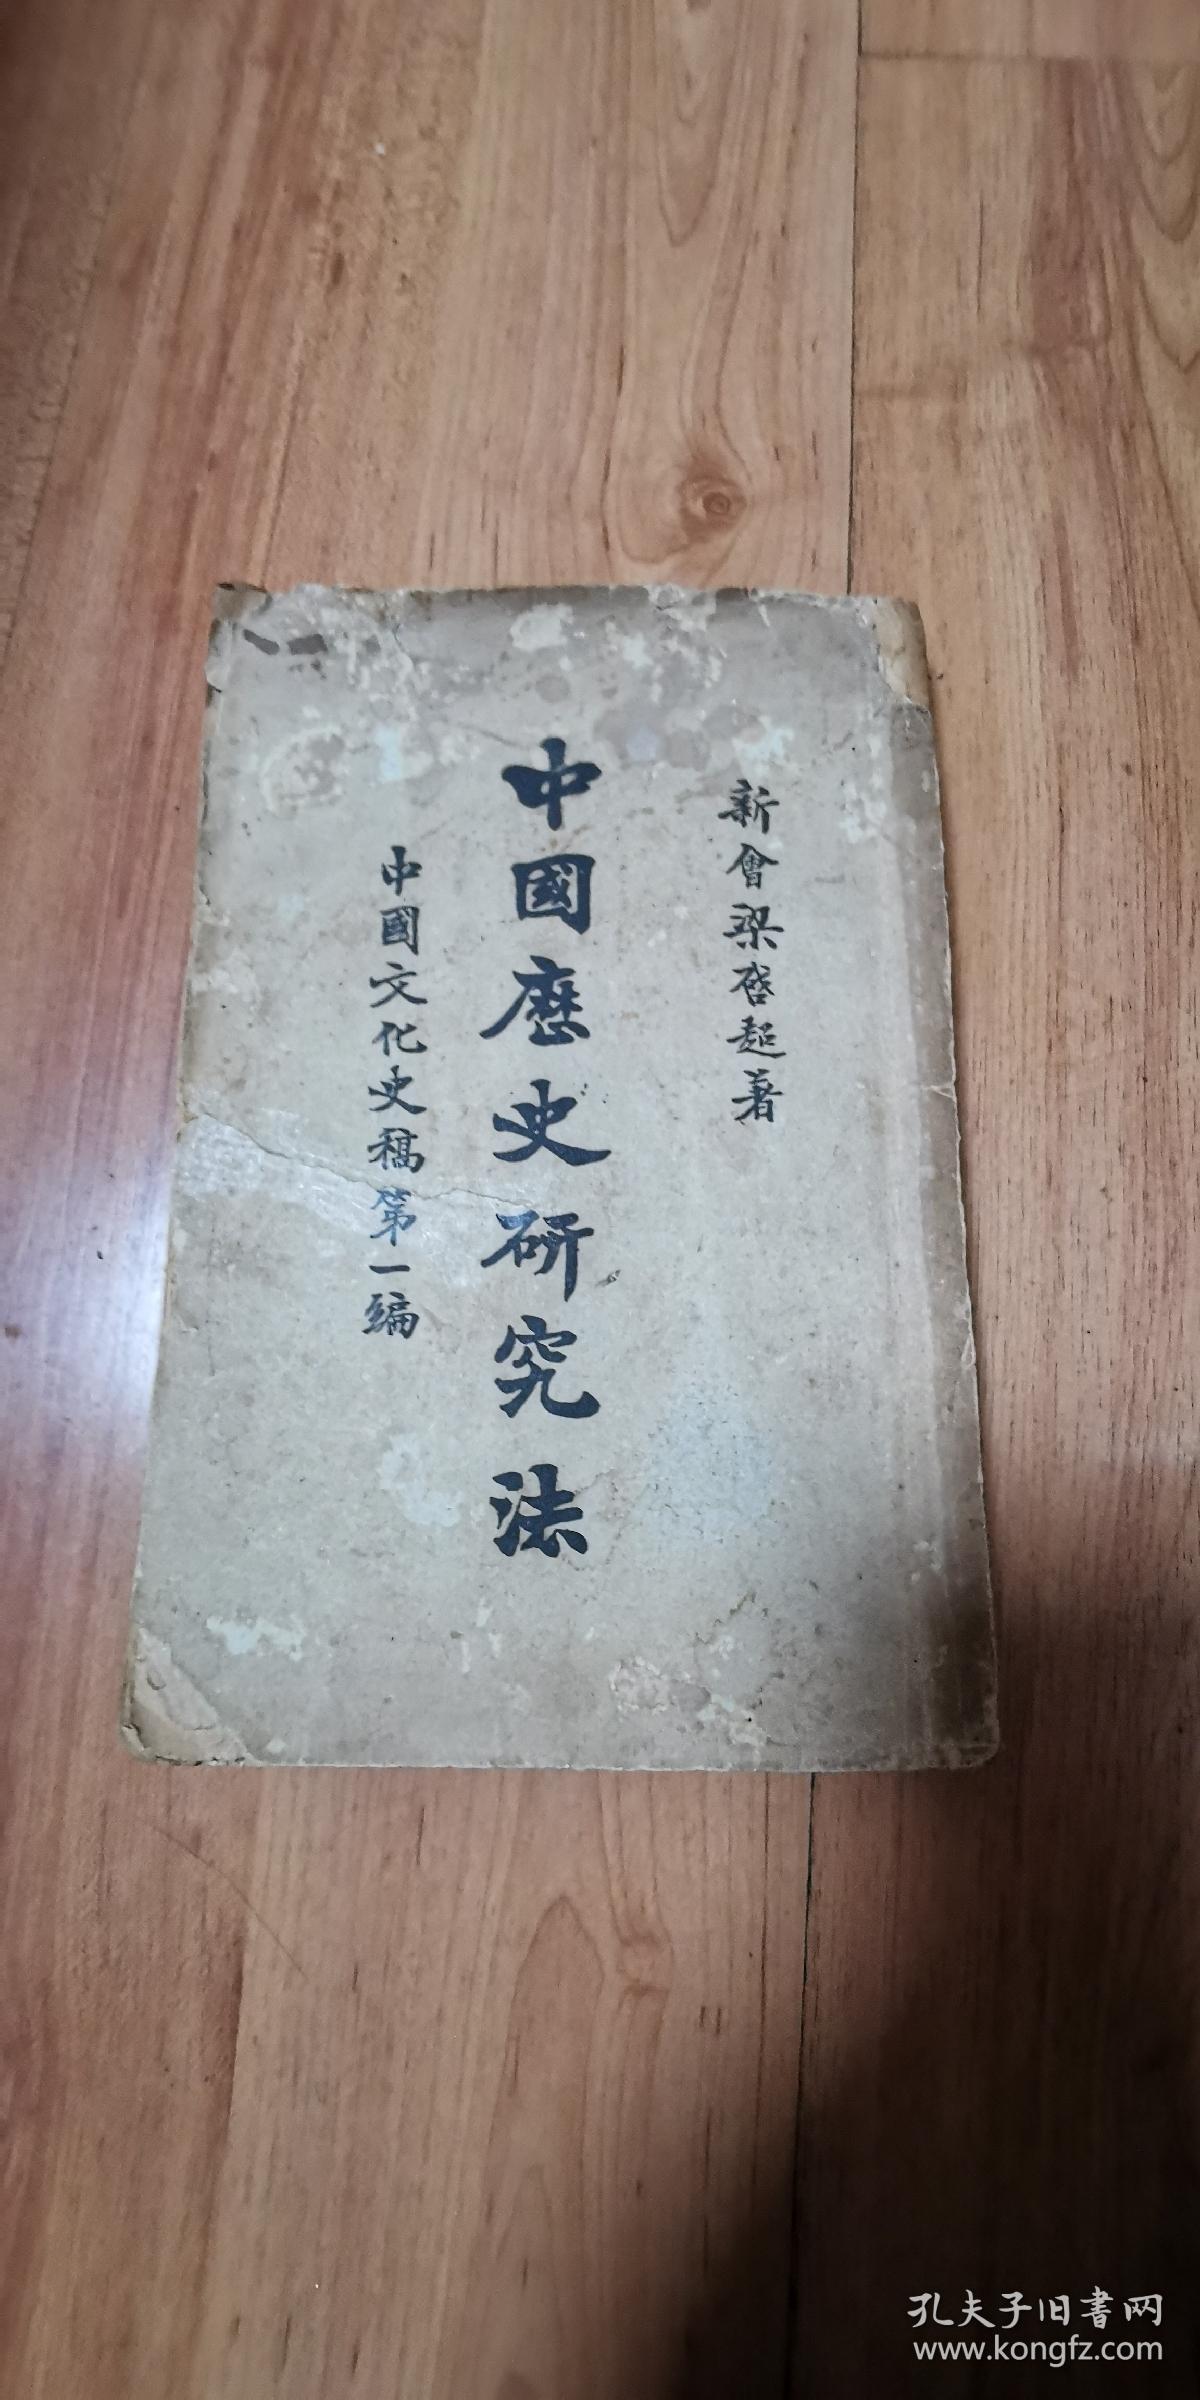 新會梁啓超著
中國歷史研究法
中國文化史稿第一編
孔夫子旧書网
www.kongfz.com